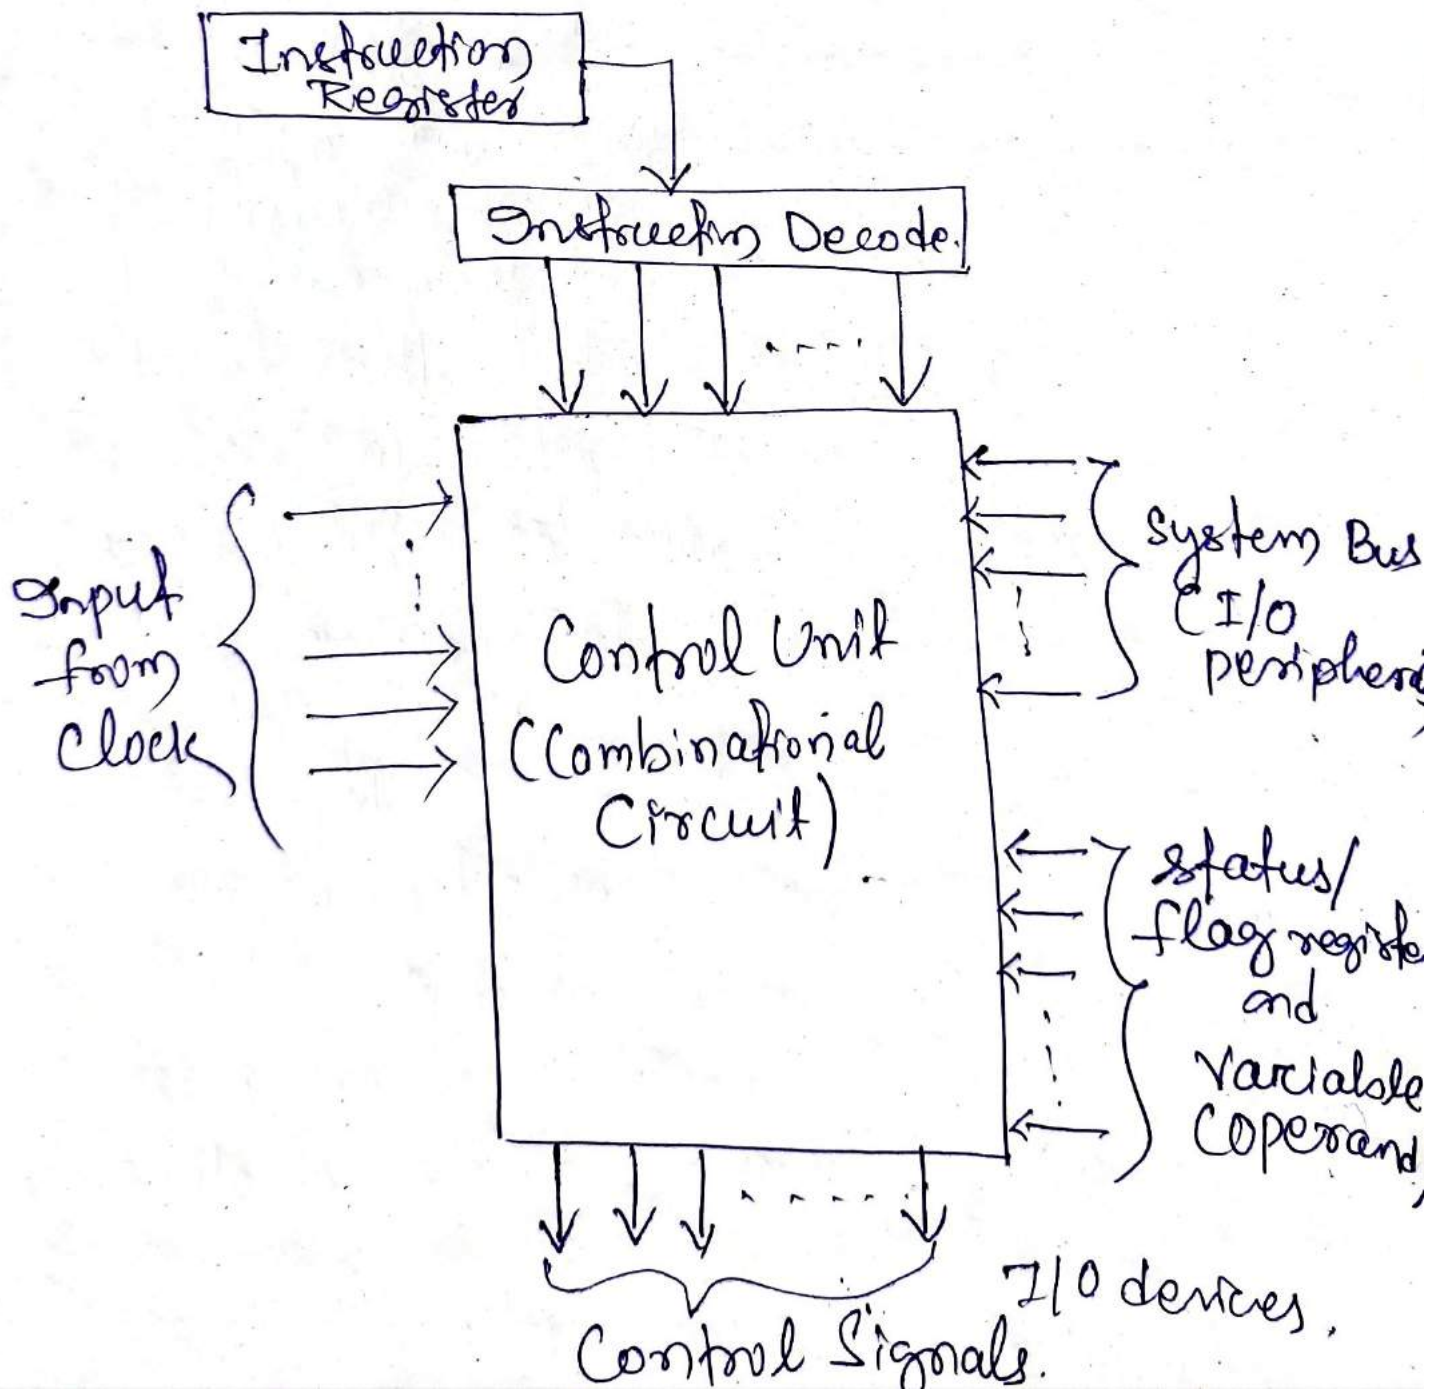 Instruction
Register
Instructin Decode.
Input
from
Clock
Control Unit
(Combinational
Circuit)
System Bus
(I/O
peripheri
status/
flag registe
and
Variable
(Operand
I/O devices.
Control Signals.